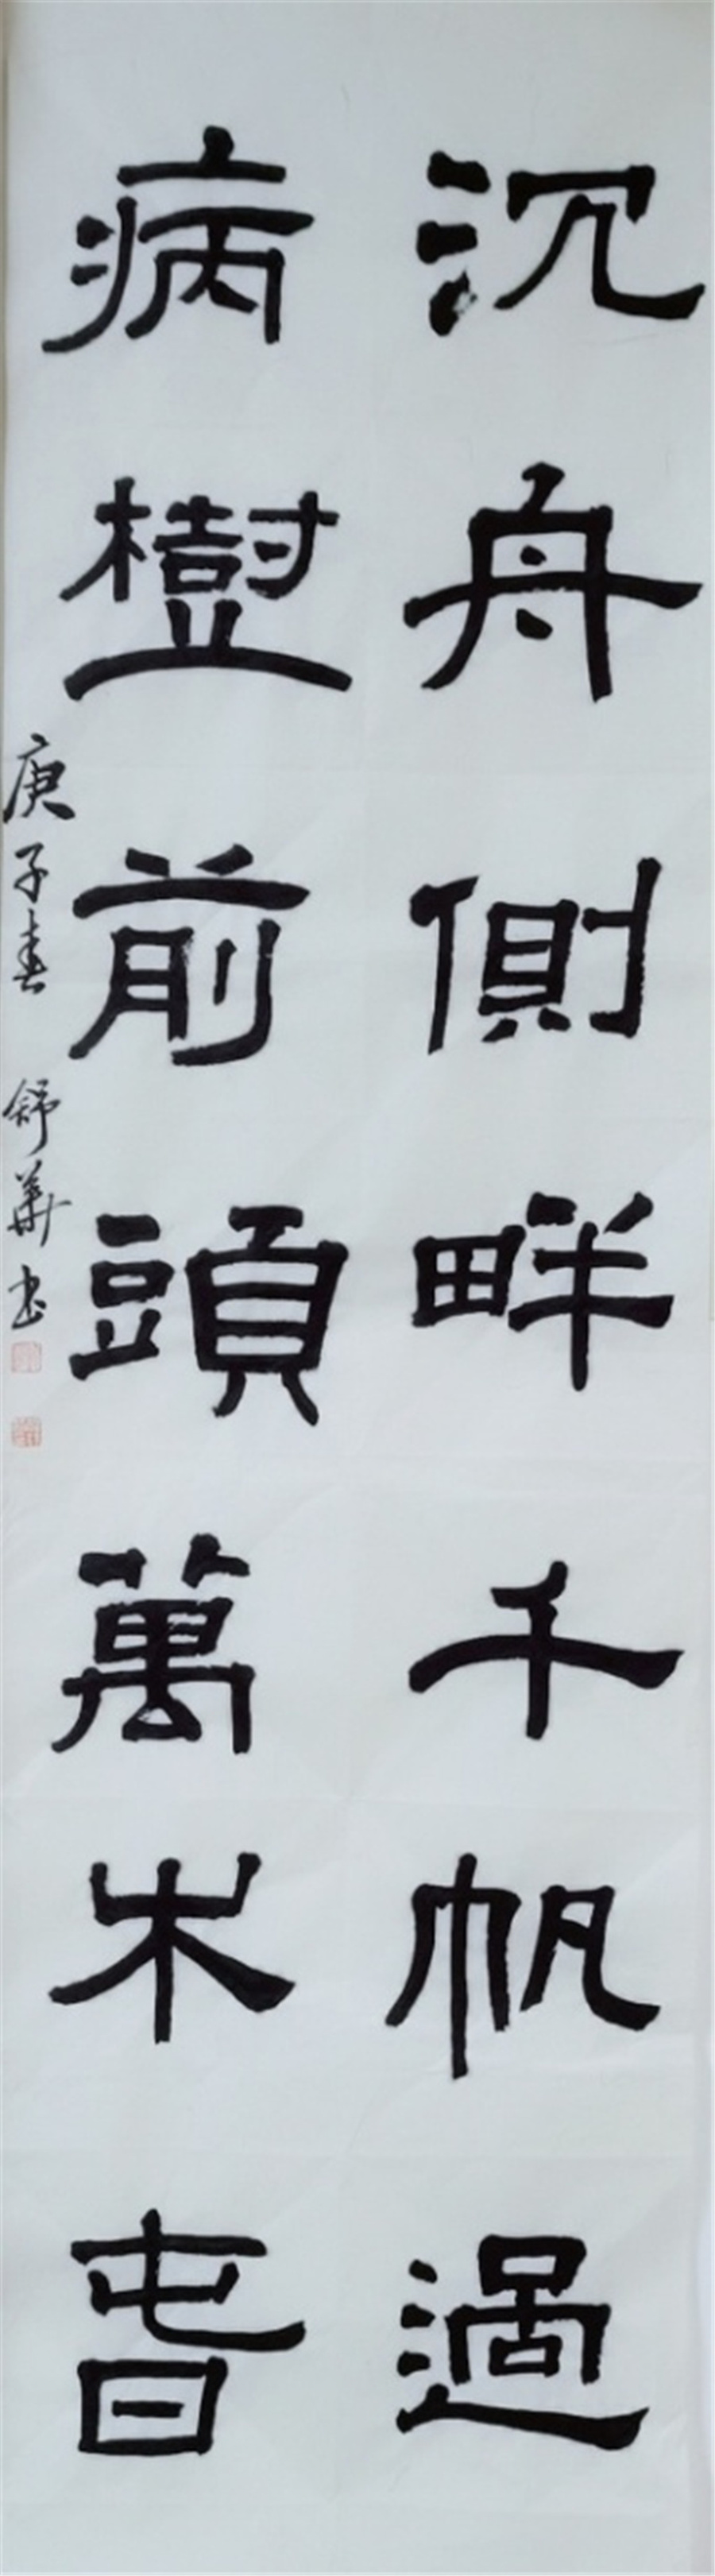 沉舟側畔千帆過
病樹前頭萬木春
庚子春 舒華书